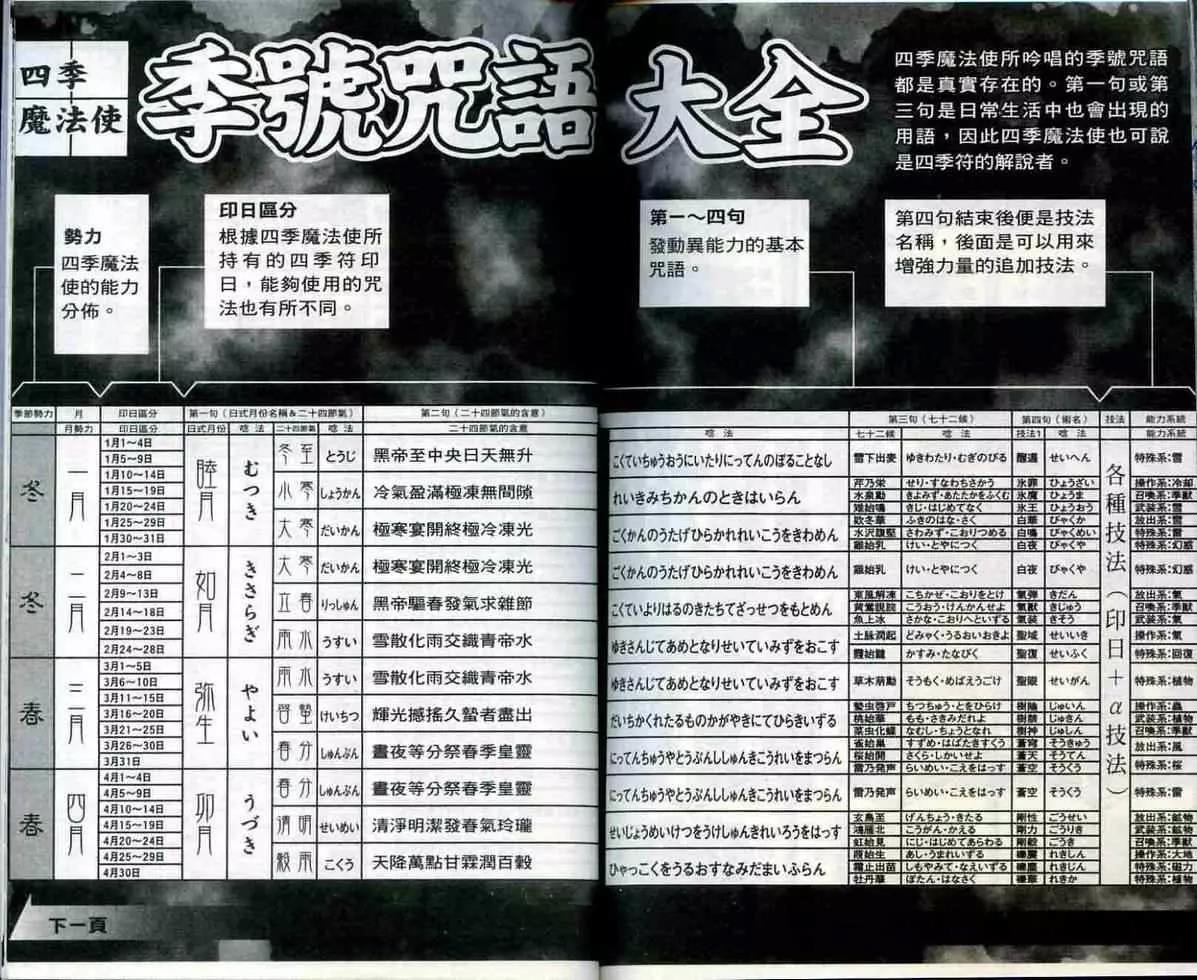 四季
魔法使
季號咒語大全
四季魔法使所吟唱的季號咒語
都是真實存在的。第一句或第
三句是日常生活中也會出現的
用語，因此四季魔法使也可說
是四季符的解說者。
勢力
四季魔法
使的能力
分佈。
印日區分
根據四季魔法使所
持有的四季符印
日，能夠使用的咒
法也有所不同。
第一～四句
發動異能力的基本
咒語。
第四句結束後便是技法
名稱，後面是可以用來
增強力量的追加技法。
季節勢力 月 印日區分 第一句（日式月份名稱＆二十四節氣） 第二句（二十四節氣的含意）
月勢力 印日區分 日式月份 唸法 二十四節氣 唸法 二十四節氣的含意
冬 一月 睦月 むつき
1月1～4日
1月5～9日
1月10～14日
1月15～19日
1月20～24日
1月25～29日
1月30～31日
冬至 とうじ 黑帝至中央日天無升
小寒 しょうかん 冷氣盈滿極凍無間隙
大寒 だいかん 極寒宴開終極冷凍光
冬 二月 如月 きさらぎ
2月1～3日
2月4～8日
2月9～13日
2月14～18日
2月19～23日
2月24～28日
大寒 だいかん 極寒宴開終極冷凍光
立春 りっしゅん 黑帝驅春發氣求雜節
雨水 うすい 雪散化雨交織青帝水
春 三月 弥生 やよい
3月1～5日
3月6～10日
3月11～15日
3月16～20日
3月21～25日
3月26～30日
3月31日
雨水 うすい 雪散化雨交織青帝水
啓蟄 けいちつ 輝光撼搖久蟄者盡出
春分 しゅんぶん 晝夜等分祭春季皇靈
春 四月 卯月 うづき
4月1～4日
4月5～9日
4月10～14日
4月15～19日
4月20～24日
4月25～29日
4月30日
春分 しゅんぶん 晝夜等分祭春季皇靈
清明 せいめい 清淨明潔發春氣玲瓏
穀雨 こくう 天降萬點甘霖潤百穀
下一頁
第三句（七十二候） 第四句（術名） 技法 能力系統
唸法 七十二候 唸法 技法1 唸法 能力系統
こくていちゅうおうにいたりにってんのぼることなし
れいきみちかんのときはいらん
ごくかんのうたげひらかれれいこうをきわめん
ごくかんのうたげひらかれれいこうをきわめん
こくていよりはるのきたちてざっせつをもとめん
ゆきさんじてあめとなりせいていみずをおこす
ゆきさんじてあめとなりせいていみずをおこす
だいちかくれたるものかがやきにてひらきいずる
にってんちゅうやとうぶんししゅんきこうれいをまつらん
にってんちゅうやとうぶんししゅんきこうれいをまつらん
せいじょうめいけつをうけしゅんきれいろうをはっす
ひゃっこくをうるおすなみだまいふらん
雪下出麦 ゆきわたり・むぎのびる せいへん 特殊系:雪
芹乃栄 せり・すなわちさかう 氷罪 ひょうざい 操作系:冷却
水泉動 きよみず・あたたかをふくむ 氷魔 ひょうま 召喚系:季獸
雉始鳴 きじ・はじめてなく 氷王 ひょうおう 武装系:雪
款冬華 ふきのはな・さく 白華 びゃくか 放出系:雪
水沢腹堅 さわみず・こおりつめる 白鳴 びゃくめい 特殊系:雪
雞始乳 けい・とやにつく 白夜 びゃくや 特殊系:幻惑
雞始乳 けい・とやにつく 白夜 びゃくや 特殊系:幻惑
東風解凍 こちかぜ・こおりをとけ 氣弾 きだん 放出系:氣
黄鶯睍睆 こうおう・けんかんせよ 氣獸 きじゅう 召喚系:季獸
魚上氷 さかな・こおりへといずる 氣装 きそう 武装系:氣
土脉潤起 どみゃく・うるおいおきよ 聖域 せいいき 操作系:氣
霞始靆 かすみ・たなびく 聖復 せいふく 特殊系:回復
草木萠動 そうもく・めばえうごけ 聖眼 せいがん 特殊系:植物
蟄虫啓戸 ちつちゅう・とをひらけ 樹陰 じゅいん 操作系:蟲
桃始華 もも・さきみだれよ 樹勝 じゅきん 武装系:植物
菜虫化蝶 なむし・ちょうとなれ 樹神 じゅしん 召喚系:季獸
雀始巣 すずめ・はばたきすくう 蒼穹 そうきゅう 放出系:風
桜始開 さくら・しかいせよ 蒼天 そうてん 特殊系:桜
雷乃発声 らいめい・こえをはっす 蒼空 そうくう
雷乃発声 らいめい・こえをはっす 蒼空 そうくう 特殊系:雷
玄鳥至 げんちょう・きたる 剛性 ごうせい 放出系:鉱物
鴻雁北 こうがん・かえる 剛力 ごうりき 武装系:鉱物
虹始見 にじ・はじめてあらわる 剛毅 ごうき 召喚系:季獸
葭始生 あし・うまれいずる 礫塵 れきしん 操作系:大地
霜止出苗 しもやみて・なえいずる 礫塵 れきじん 特殊系:磁力
牡丹華 ぼたん・はなさく 礫華 れきか 特殊系:植物
各種技法（印日＋α技法）